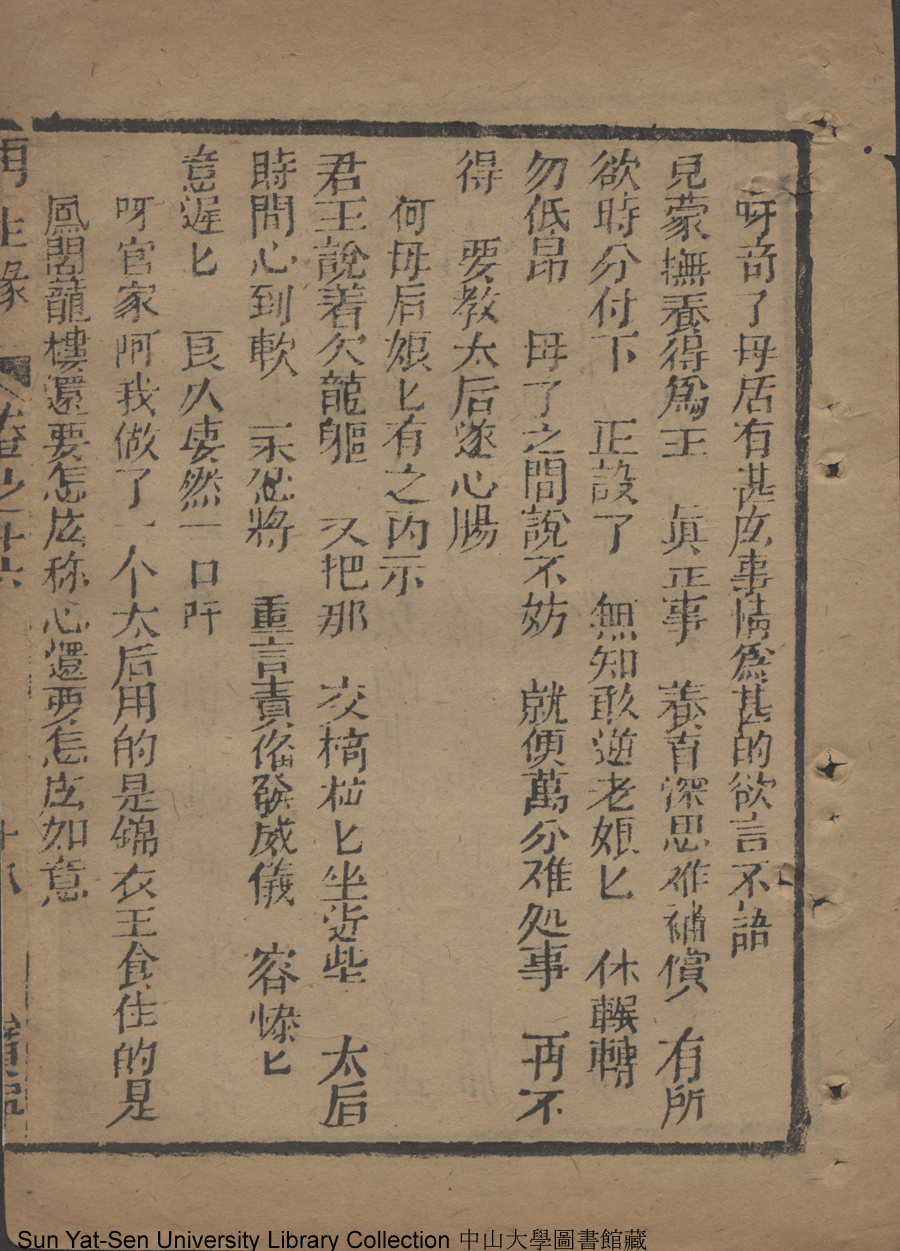 呀奇了母后有甚庅事情爲甚的欲言不語
見蒙撫養得爲王　眞正事　養育深思难補償　有所
欲時分付下　正設了　無知敢逆老娘匕　休輾轉
勿低昂　母了之間說不妨　就便萬分难処事　再不
得　要教太后遂心腸
何母后娘匕有之内示
君王說着欠龍軀　又把那　交椅　匕坐近些　太后
時間心到軟　未　將　重言責俻發威儀　容慘匕
意遲匕　良久凄然一口吁
呀官家阿我做了一个太后用的是錦衣王食住的是
鳳閣龍樓還要怎庅称心還要怎庅如意
再生緣　卷之十六　十八
Sun Yat-Sen University Library Collection 中山大學圖書館藏